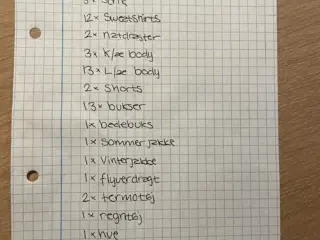 12x Sweatshirts
2x natdragter
3x K/æ body
13x L/æ body
2x Shorts
13x bukser
1x bedebuks
1x Sommerjakke
1x Vinterjakke
1x flyverdragt
2x termotøj
1x regntøj
1x hue